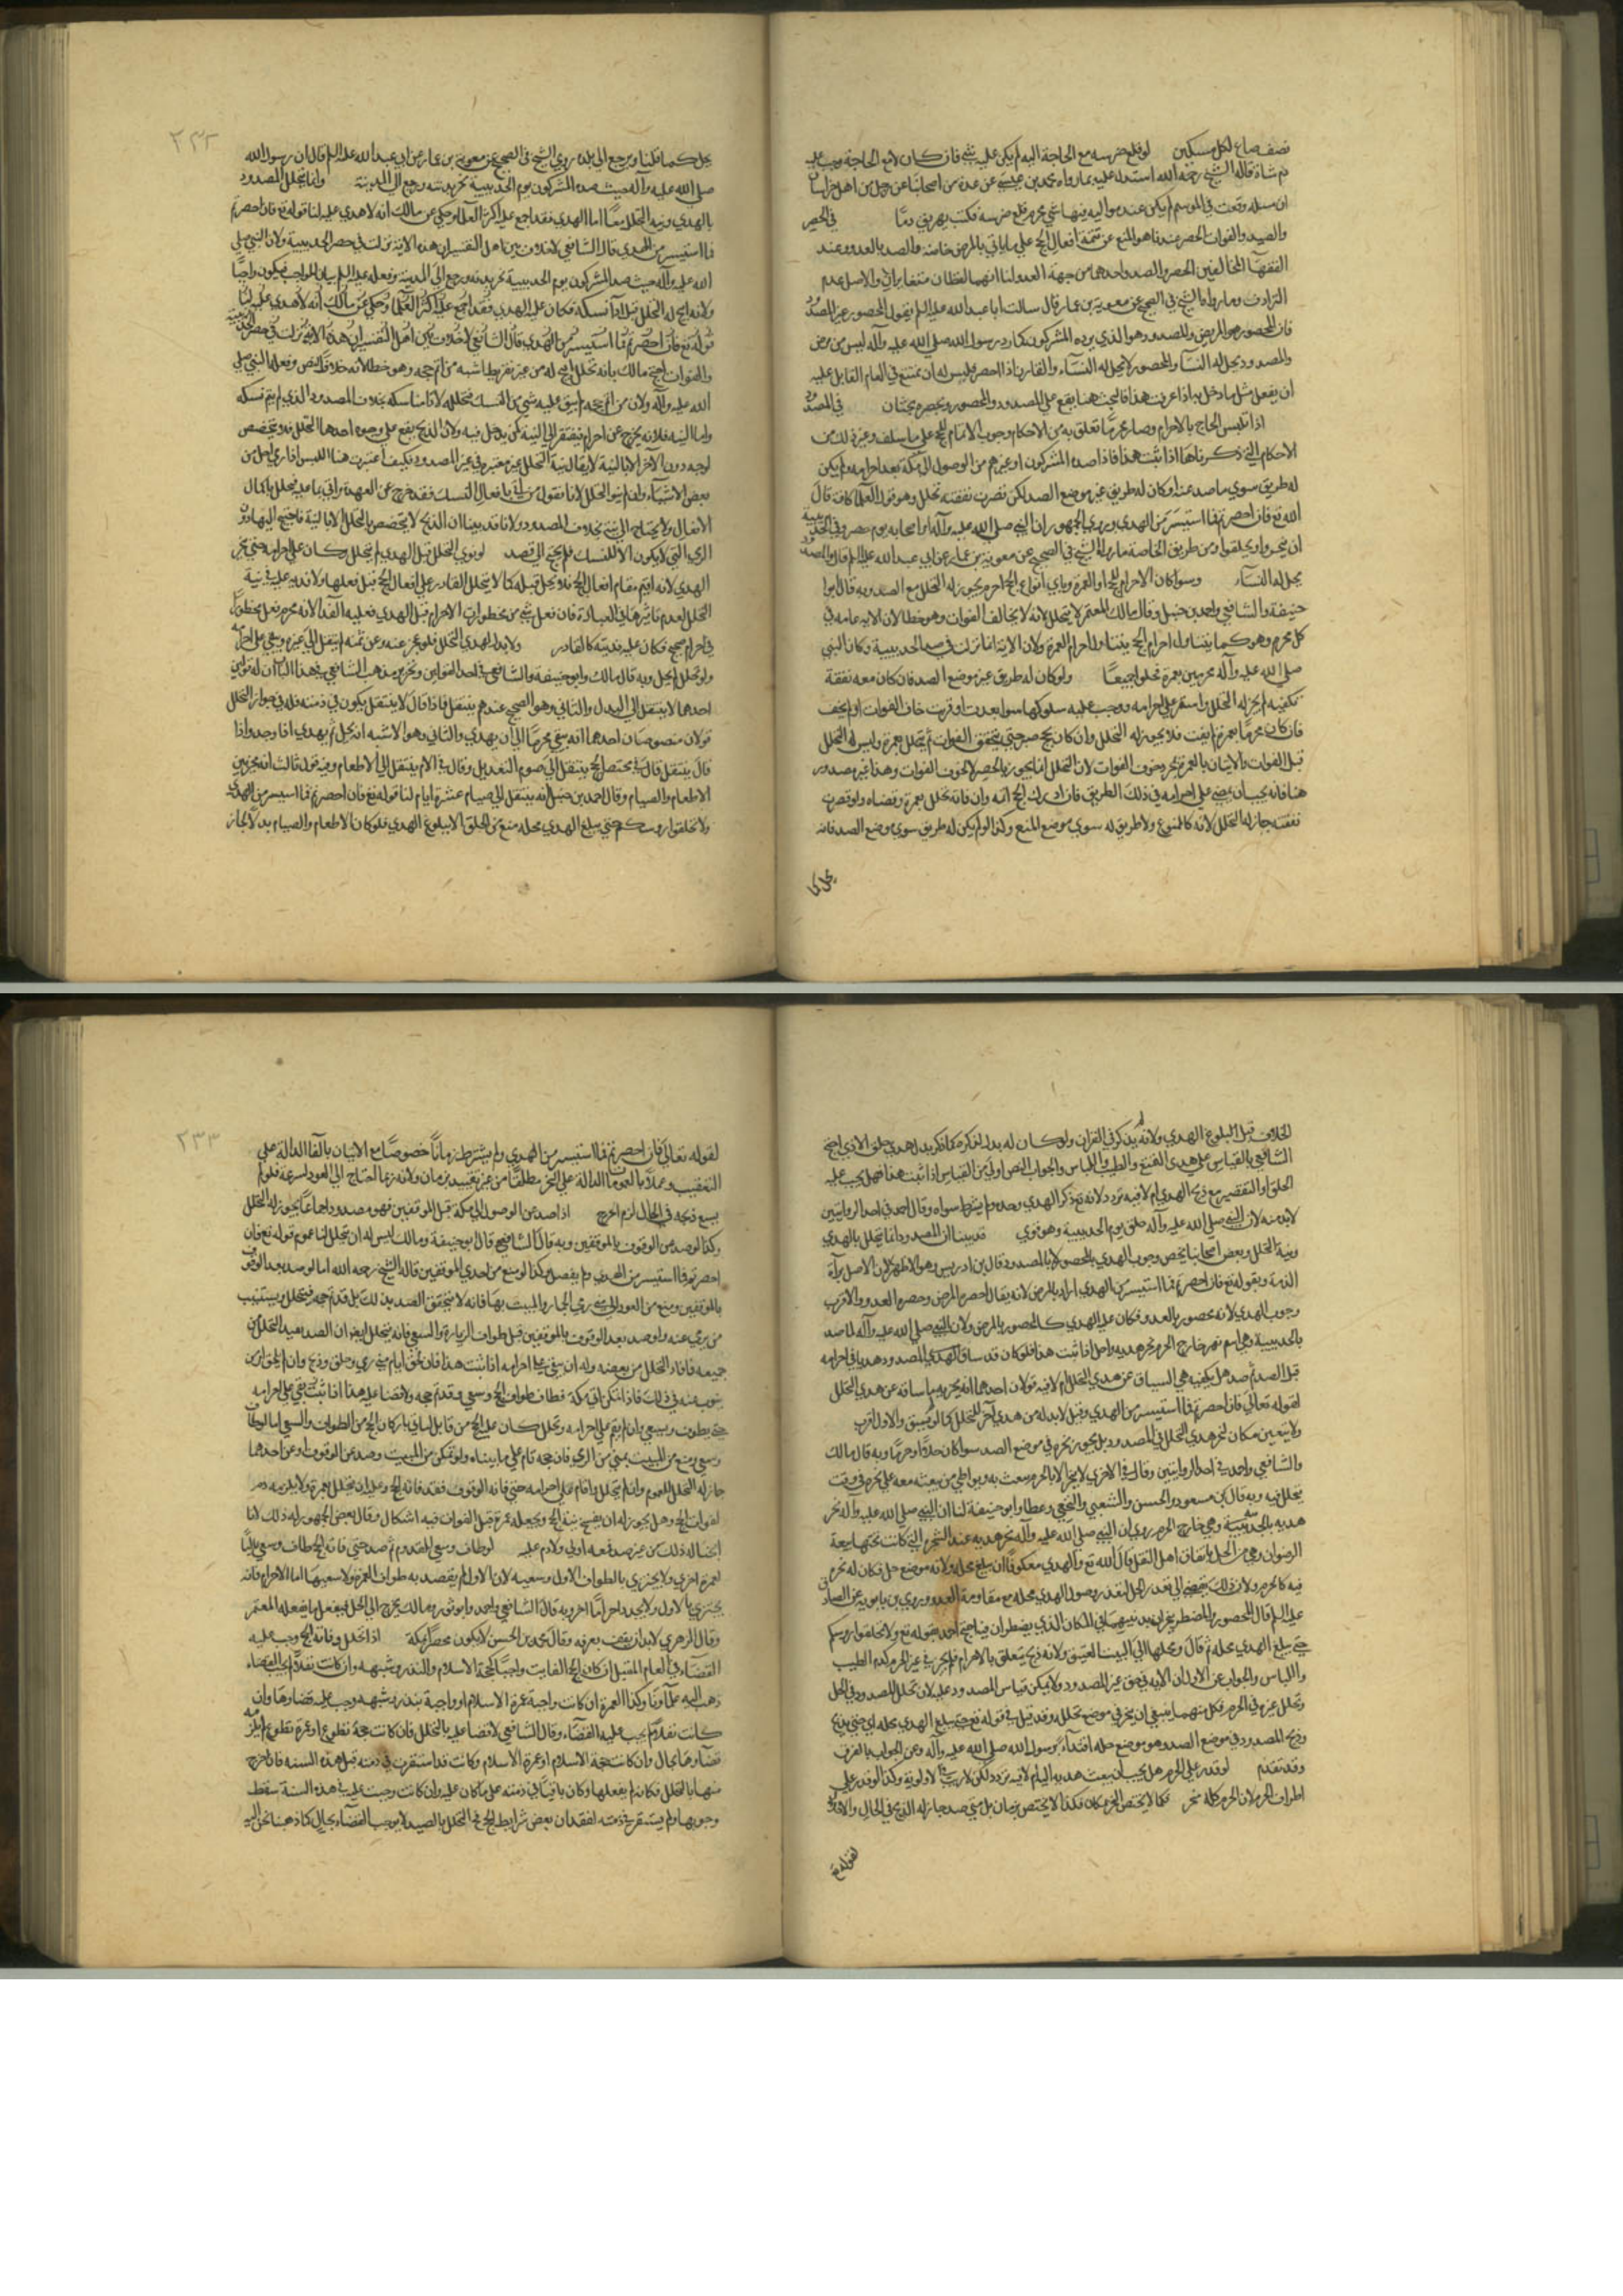 نصف صاع لكل مسكين لو قلع ضرسه مع الحاجة اليه لم يكن عليه شي فان كان لا مع الحاجة وجب عليه
دم شاة قاله الشيخ رحمه الله استدل عليه بما رواه محمد بن عيسى عن عدة من اصحابنا عن رجل من اهل خراسان
ان مسئلة وقعت في الموسم لم يكن عند مواليه فيها شي محرم قلع ضرسه فكتب يهريق دما في الحصر
والصد والفوات الحصر عندنا هو المنع عن تتمة افعال الحج على ما ياتي بالمرض خاصة والصد بالعدو وعند
الفقهاء المخالفين الحصر والصد واحد هما من جهة العدو لنا انهما لفظان متغايران والاصل عدم
الترادف وما رواه الشيخ في الصحيح عن معوية بن عمار قال سالت ابا عبد الله عليه السلم يقول المحصور غير المصدود
فان المحصور هو المريض والمصدود هو الذي يرده المشركون كما رد رسول الله صلى الله عليه وآله ليس من مرض
والمصدود يحل له النسآء والمحصور لا يحل له النسآء والقارن اذا احصر فليس له ان يتمتع في العام القابل عليه
ان يفعل مثل ما دخل به اذا عرفت هذا فالبحث هنا يقع على المصدود والمحصور ويحصره بحثان في المصدود
اذا تلبس الحاج بالاحرام وصار محرما تعلق به من الاحكام وجوب الاتمام للحج على ما سلف وغير ذلك من
الاحكام التي ذكرناها اذا ثبت هذا فاذا صده المشركون او غيرهم من الوصول الى مكة بعد احرامه ولم يكن
له طريق سوى ما صد عنه او كان له طريق غير موضع الصد لكن قصرت نفقته تحلل وهو قول العلما كافة قال
الله تع فان احصرتم فما استيسر من الهدي وروى الجمهور ان النبي صلى الله عليه وآله امر اصحابه يوم حصر في الحديبية
ان ينحروا ويحلقوا ومن طريق الخاصة ما رواه الشيخ في الصحيح عن معوية بن عمار عن ابي عبد الله عليه السلم قال والمصدود
يحل له النسآء وسوا كان الاحرام للحج او العمرة وباي انواع الحج احرم يجوز له التحلل مع الصد وبه قال ابو
حنيفة والشافعي واحمد بن حنبل وقال مالك المعتمر لا يتحلل لانه لا يخاف الفوات وهو خطا لان الاية عامة في
كل محرم وهو كما يتناول احرام الحج يتناول احرام العمرة ولان الاية انما نزلت في صد الحديبية وكان النبي
صلى الله عليه وآله محرمين بعمرة فحلوا جميعا ولو كان له طريق غير موضع الصد فان كان معه نفقة
تكفيه لم يجز له التحلل واستمر على احرامه ووجب عليه سلوكها سوا بعدت او قربت خاف الفوات او لم يخف
فان كان محرما بعمرة لم يفت فلا يجوز له التحلل وان كان بحج صبر حتى يتحقق الفوات ثم يتحلل بعمرة وليس له التحلل
قبل الفوات والاتيان بالعمرة بمجرد خوف الفوات لان التحلل انما يجوز بالحصر لا خوف الفوات وهذا غير مصدود
هنا فانه يجب ان يمضي على احرامه في ذلك الطريق فان ادرك الحج اتمه وان فاته تحلل بعمرة وقضاه ولو قصرت
نفقته جاز له التحلل لانه كالممنوع ولا طريق له سوى موضع المنع وكذا لو لم يكن له طريق سوى موضع الصد فانه
يحل كما
يحل كما قلنا ويرجع الى بلده روى الشيخ في الصحيح عن معوية بن عمار عن ابي عبد الله عليه السلم قال ان رسول الله
صلى الله عليه وآله حيث صده المشركون يوم الحديبية نحر بدنته ورجع الى المدينة وانما يتحلل المصدود
بالهدي ونية التحلل معا اما الهدي فقد اجمع عليه اكثر العلما وحكي عن مالك انه لا هدي عليه لنا قوله تع فان احصرتم
فما استيسر من الهدي قال الشافعي لا خلاف بين اهل التفسير ان هذه الاية نزلت في حصر الحديبية ولان النبي صلى
الله عليه وآله حيث صده المشركون يوم الحديبية نحر بدنه ورجع الى المدينة وفعله عليه السلم بيان للواجب فيكون واجبا
ولانه ابيح له التحلل قبل ادآء نسكه فكان عليه الهدي فقد اجمع عليه اكثر العلما وحكي عن مالك انه لا هدي عليه لنا
قوله تع فان احصرتم فما استيسر من الهدي قال الشافعي لا خلاف بين اهل التفسير ان هذه الاية نزلت في حصر الحديبية
والفوات احتج مالك بانه تحلل ابيح له من غير تفريط اشبه من اتم حجه وهو خطا لانه خلاف النص وفعله النبي صلى
الله عليه وآله ولان من اتم حجه لم يبق عليه شي من النسك فتحلله لادآ مناسكه بخلاف المصدود الذي لم يتم نسكه
واما النية فلانه يخرج عن احرام فيفتقر الى النية كمن يدخل فيه ولان الذبح يقع على وجوه احدها التحلل فلا يتخصص
لوجه دون الآخر الا بالنية لا يقال نية التحلل غير معتبرة في غير المصدود فكيف اعتبرت هنا اليس اذا رمى احل من
بعض الاشيآء وان لم ينو التحلل لانا نقول من اتى بافعال النسك فقد خرج عن العهدة واتى بما عليه فيحلل باكمال
الافعال ولا يحتاج الى نية بخلاف المصدود ولانا قد بينا ان الذبح لا يتخصص بالتحلل الا بالنية فاحتيج اليها دون
الرمي التي لا يكون الا للنسك فلم يحتج الى قصد لو نوى التحلل قبل الهدي لم يتحلل وكان على احرامه حتى ينحر
الهدي لانه اقيم مقام افعال الحج فلا يحل قبله كما لا يتحلل القادر على افعال الحج قبل فعلها ولا فدية عليه في نية
التحلل لعدم تاثيرها في العبادة فان فعل شي من محظورات الاحرام قبل الهدي فعليه الفدآ لانه محرم فعل محظورا
في احرام صحيح فكان عليه فديته كالقادر ولا بدل لهدي التحلل فلو عجز عنه وعن ثمنه لم ينتقل الى غيره ويبقى على احرامه
ولو تحلل لم يحل وبه قال مالك وابو حنيفة والشافعي في احد القولين وتحرير مذهب الشافعي في هذا الباب ان له قولين
احدهما لا ينتقل الى البدل والثاني وهو الصحيح عندهم ينتقل فاذا قال لا ينتقل يكون في ذمته فله في جواز التحلل
قولان منصوصان احدهما انه يبقى محرما الى ان يهدي والثاني وهو الاشبه انه يحل ثم يهدي اذا وجد واذا
قال ينتقل قال في مختصر الحج ينتقل الى صوم التعديل وقال في الام ينتقل الى الاطعام وفيه قول ثالث انه مخير بين
الاطعام والصيام وقال احمد بن حنبل انه ينتقل الى صيام عشرة ايام لنا قوله تع فان احصرتم فما استيسر من الهدي
ولا تحلقوا رؤسكم حتى يبلغ الهدي محله منع من الحلق الا ببلوغ الهدي فلو كان الاطعام والصيام بدلا لجاز
الحلاق قبل البلوغ الهدي ولانه لم يذكر في القران ولو كان له بدل لذكره كما ذكر بدل هدي حلق الاذى احتج
الشافعي بالقياس على هدي التمتع والطيب واللباس والجواب النص اولى من القياس اذا ثبت هذا فهل يجب عليه
الحلق او التقصير مع ذبح الهدي ام لا فيه تردد لانه تع ذكر الهدي وحده ولم يشترط سواه وقال احمد في احد الروايتين
لا بد منه لان النبي صلى الله عليه وآله حلق يوم الحديبية وهو قوي قد بينا ان المصدود انما يتحلل بالهدي
ونية التحلل وبعض اصحابنا يخص وجوب الهدي بالمحصور لا بالمصدود قال بن ادريس وهو الاظهر لان الاصل براة
الذمة وبقوله تع فان احصرتم فما استيسر من الهدي اراد بالمرض لانه يقال احصره المرض وحصره العدو والاقرب
وجوب الهدي لانه محصور بالعدو فكان عليه الهدي كالمحصور بالمرض ولان النبي صلى الله عليه وآله لما صد
بالحديبية وهي اسم نهر خارج الحرم نحر هديه واحل اذا ثبت هذا فلو كان قد ساق الهدي المصدود هديا في احرامه
قبل الصد ثم صد هل يكفيه هدي السياق عن هدي التحلل ام لا فيه قولان احدهما انه يجزيه ما ساقه عن هدي التحلل
لقوله تعالى فان احصرتم فما استيسر من الهدي وقيل لا بد له من هدي آخر للتحلل كما لو لم يسق والاول اقرب
ولا يتعين مكان لنحر هدي التحلل في المصدود بل يجوز نحره في موضع الصد سوا كان حلا او حرما وبه قال مالك
والشافعي واحمد في احد الروايتين وقال في الاخرى لا ينحر الا بالحرم يبعث به ويواطي من يبعثه معه على نحره في وقت
يتحلل فيه وبه قال بن مسعود والحسن والشعبي والنخعي وعطا وابو حنيفة لنا ان النبي صلى الله عليه وآله نحر
هديه بالحديبية وهي خارج الحرم روي ان النبي صلى الله عليه وآله نحر هديه عند الشجرة التي كانت تحتها بيعة
الرضوان وهي من الحل باتفاق اهل النقل قال الله تع والهدي معكوفا ان يبلغ محله ولانه موضع حل فكان له نحره
فيه كالحرم ولان ذلك يفضي الى تعذر الحل لتعذر وصول الهدي محله مع مقاومة العدو وروى بن بابويه عن الصادق
عليه السلم قال المحصور والمضطر ينحران بدنتيهما في المكان الذي يضطران فيه احتج احمد بقوله تع ولا تحلقوا رؤسكم
حتى يبلغ الهدي محله ثم قال ومحلها الى البيت العتيق ولانه ذبح يتعلق بالاحرام فلم يجز في غير الحرم كدم الطيب
واللباس والجواب عن الاول ان الاية في حق غير المصدود ولا يمكن قياس المصدود عليه لان تحلل المصدود في الحل
وتحلل غيره في الحرم فكل منهما ينبغي ان ينحر في موضع تحلله وقد قيل في قوله تع حتى يبلغ الهدي محله اي حتى يذبح
وذبح المصدود في موضع الصد وهو موضع حله اقتدآء برسول الله صلى الله عليه وآله وعن الجواب بالفرق
وقد تقدم لو قدر على الحرم هل يجب ان يبعث هديه اليه ام لا فيه تردد لكن لا ريب في الاولوية وكذا لو قدر على
اطراف الحرم لان الحرم كله منحر فكما لا يختص النحر بمكان فكذا لا يختص بزمان بل متى صد جاز له الذبح في الحال والاحلال
لقوله تع
لقوله تعالى فان احصرتم فما استيسر من الهدي ولم يشترط زمانا خصوصا مع الاتيان بالفا الدالة على
التعقيب وعملا بالعمومات الدالة على النحر مطلقا من غير تقييد بزمان ولانه ربما احتاج الى العود لسرعة فلو لم
يسع ذبحه في الحال لزم الحرج اذا صد من الوصول الى مكة قبل الموقفين فهو مصدود اجماعا يجوز له التحلل
وكذا لو صد من الوقوف بالموقفين وبه قال الشافعي قال ابو حنيفة ومالك ليس له ان يتحلل لنا عموم قوله تع فان
احصرتم فما استيسر من الهدي ولم يفصل وكذا لو منع من احدى الموقفين قاله الشيخ رحمه الله اما لو صد بعد الوقوف
بالموقفين ومنع من العود الى منى لرمي الجمار والمبيت بها فانه لا يتحقق الصد بذلك بل قد تم حجه فيتحلل ويستنيب
من يرمي عنه ولو صد بعد الوقوف بالموقفين قبل طواف الزيارة والسعي فانه يتحلل ايضا لان الصد يفيد التحلل من
جميعه فافاد التحلل من بعضه وله ان يبقى على احرامه اذا ثبت هذا فان لحق ايام منى رمى وحلق وذبح وان لم يلحق امر من
ينوب عنه في ذلك فاذا تمكن اتى مكة فطاف طواف الحج وسعى وقد تم حجه ولا قضا عليه هذا اذا ثبت بقى على احرامه
حتى يطوف ويسعى وان لم يقم على احرامه وتحلل كان عليه الحج من قابل لياتي باركان الحج من الطواف والسعي اما لو طاف
وسعى ومنع من المبيت بمنى من الرمي فان حجه تام على ما بيناه ولو تمكن من المبيت وصد عن الوقوف او عن احدهما
جاز له التحلل للعموم وان لم يتحلل واقام على احرامه حتى فاته الوقوف فقد فاته الحج وعليه ان يتحلل بعمرة ولا يلزمه دم
لفوات الحج وهل يجوز له ان يفسخ نية الحج ويجعله عمرة قبل الفوات فيه اشكال وقال بعض الجمهور له ذلك لانا
ابحنا له ذلك من غير صد فمعه اولى ولا دم عليه لو طاف وسعى للقدوم ثم صد حتى فاته الحج طاف وسعى ثانيا
لعمرة اخرى ولا يجتزي بالطواف الاول وسعيه لان الاول لم يقصد به طواف العمرة ولا سعيها اما الاحرام فانه
يجتزي بالاول ولا يجدد احراما آخر وبه قال الشافعي واحمد وابو ثور ومالك يخرج الى الحل فيفعل ما يفعله المعتمر
وقال الزهري لا بد ان يقف بعرفة وقال محمد بن الحسن لا يكون محصرا بمكة اذا تحلل وفاته الحج وجب عليه
القضآء في العام المقبل ان كان الحج الفايت واجبا كحجة الاسلام والنذر وشبهه وان كانت نفلا لم يجب القضاء
ذهب اليه علماؤنا وكذا العمرة ان كانت واجبة عمرة الاسلام او واجبة بنذر وشبهه وجب عليه قضاؤها وان
كانت نفلا لم يجب عليه القضآء وقال الشافعي لا قضا عليه بالتحلل فان كانت حجة تطوع او عمرة تطوع لم يلزمه
قضاؤها بحال وان كانت حجة الاسلام او عمرة الاسلام وكانت قد استقرت في ذمته قبل هذه السنة فاذا خرج
منها بالتحلل فكانه لم يفعلها وكان باقيا في ذمته على ما كان عليه وان كانت وجبت عليه في هذه السنة سقط
وجوبها ولم يستقر في ذمته لفقدان بعض شرايط الحج فح التحلل بالصد لا يوجب القضآء بحال كما ذهبنا نحن اليه
٢٣٢
٢٣٣